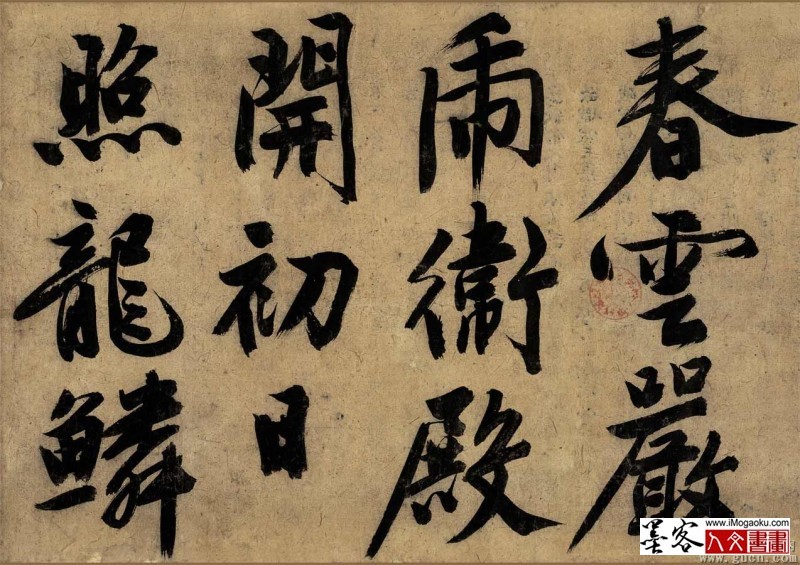 春雲嚴
乕衛殿
開初日
照龍鱗
墨客
www.iMogaoku.com
人文書畫
www.gucn.com